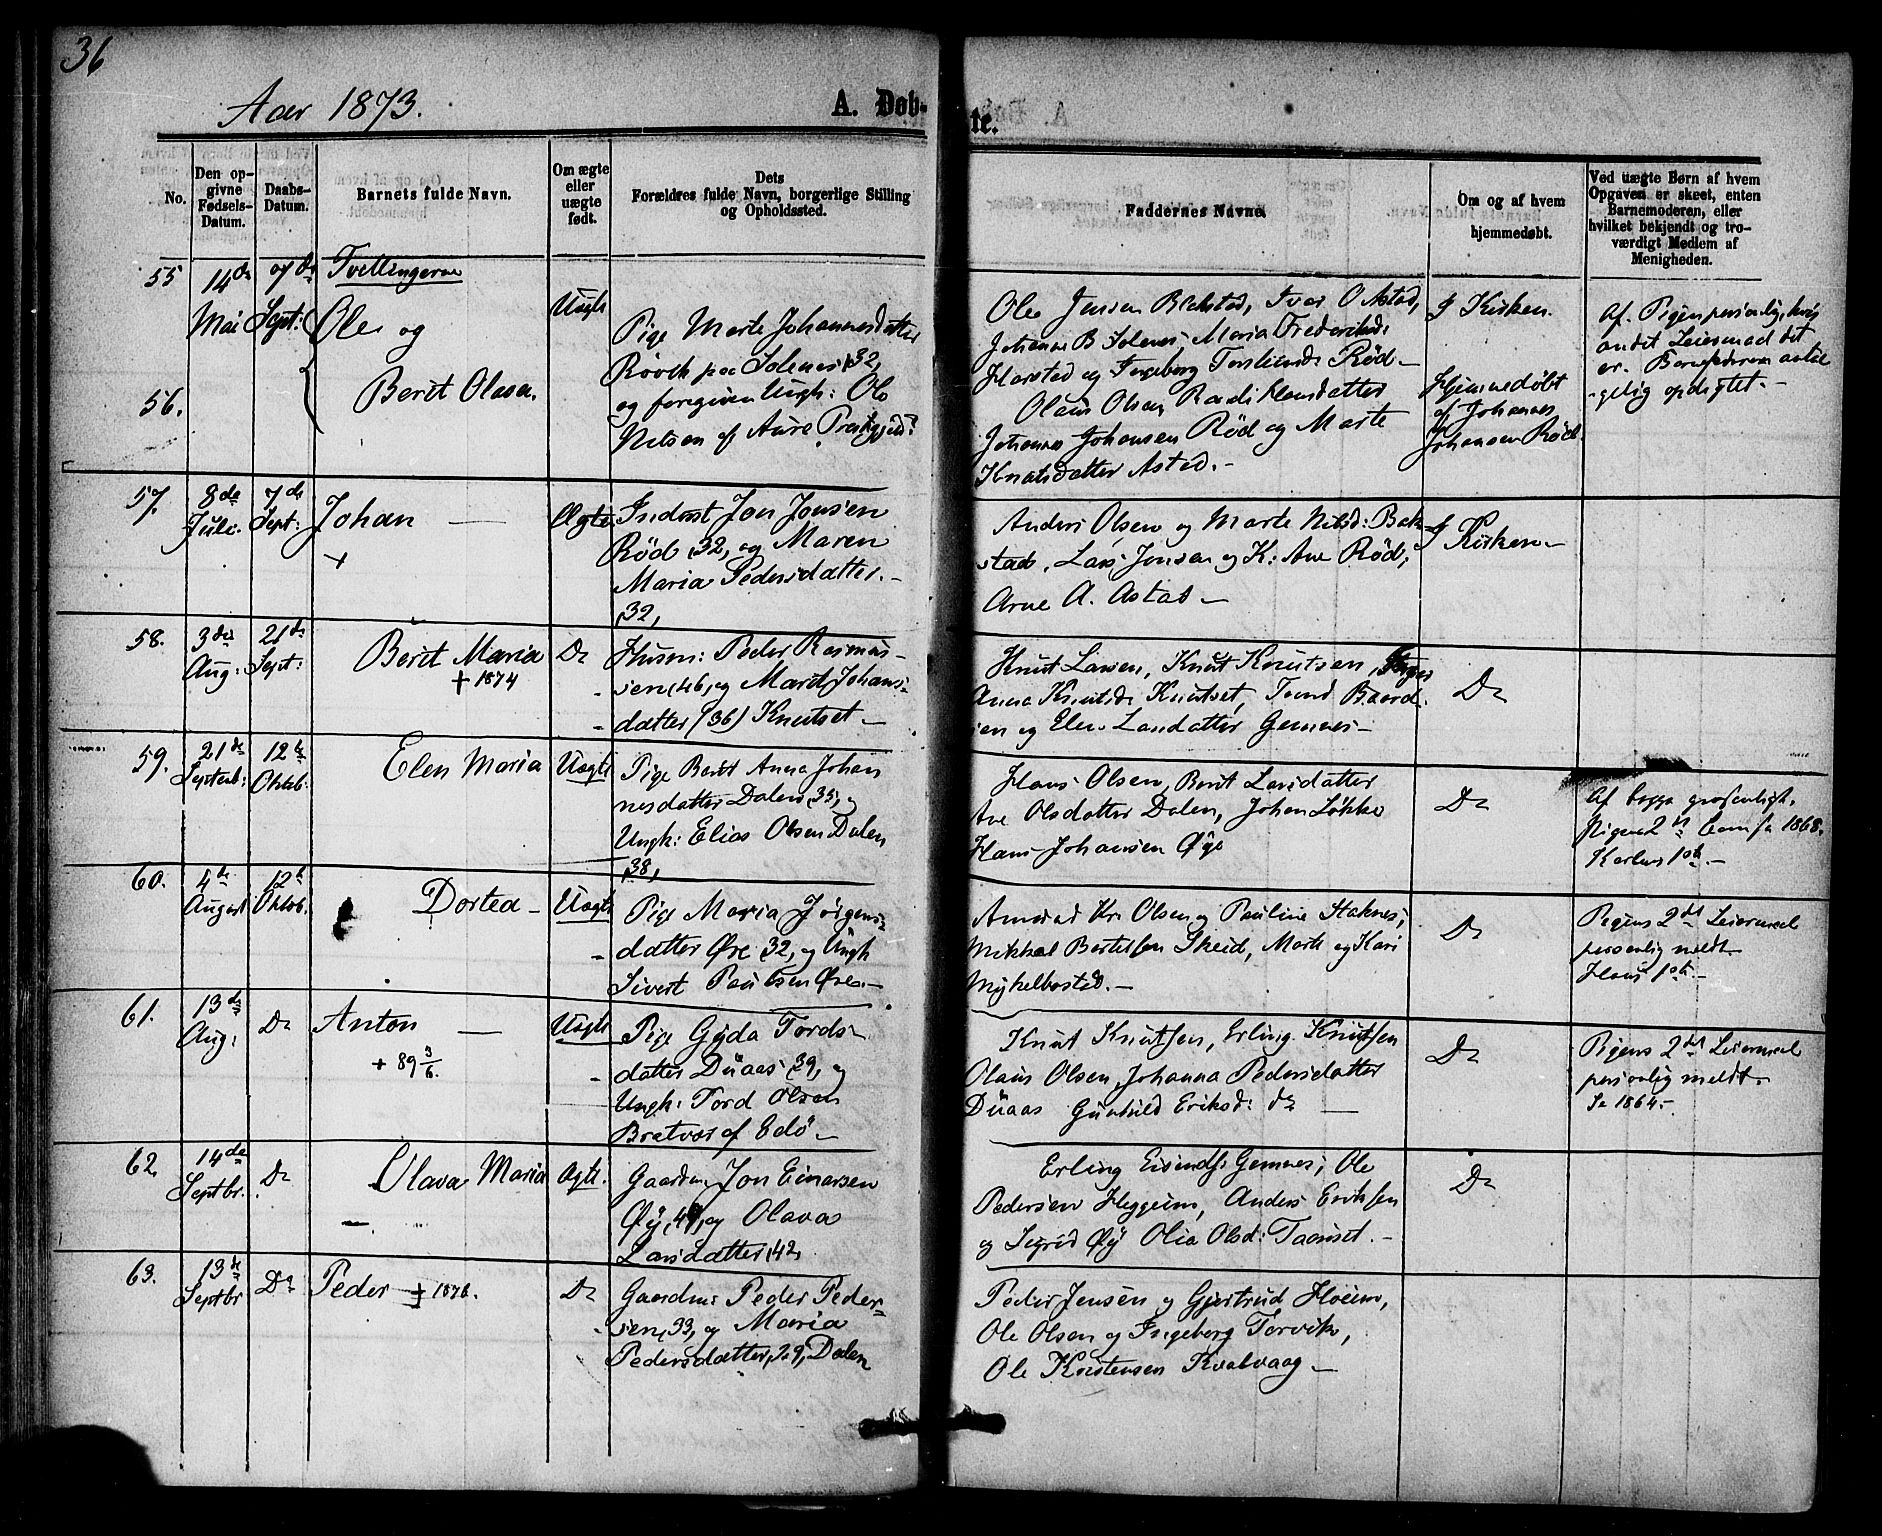 36
Aar 1873.
A. Døb-
te.
No.
Den op-
givne
Fødsels-
Datum.
Daabs-
Datum.
Barnets fulde Navn.
Om ægte
eller
uægte
født.
Dets
Forældres fulde Navn, borgerlige Stilling
og Opholdssted.
Faddernes Navne.
Om og af hvem
hjemmedøbt.
Ved uægte Børn af hvem
Opgaven er skeet, enten
Barnemoderen, eller
hvilket bekjendt og tro-
værdigt Medlem af
Menigheden.
55
14de
Mai
7de
Sept:
Tvillingerne
Ole og
56.
Berit Olava.
Uægte
Pige Marte Johannesdatter
paa Solenes, 32,
og foregiven Ungk: Ole
Nilsen af Aure Prstgjeld:
Ole Jensen Bakstad, Iver O Astad,
Johanne B Solenes, Maria Frederiksd:
Harstad og Ingeborg Rød
Olaus Olsen, Randi Hansdatter
Johannes Johansen Rød og Marte
Knutsdatter Astad. -
I Kirken.
Hjemmedøbt
af Johannes
Johansen Rød.
Af Pigen personlig, hvis
andet Leiermaal det
er. Barnefaderen
opdigtet. -
57.
8de
Juli.
7de
Sept:
Johan
+
Ægte
Inderst Jon Jonsen
Rød 32, og Maren
Maria Pedersdatter. -
32,
Anders Olsen og Marte Nilsd: Bak-
stad, Lars Jonsen og K: Ane Rød,
Arne A. Astad -
I Kirken -
58.
3die
Aug:
21de
Sept:
Berit Maria
+ 1874
Do
Husm: Peder Rasmus-
sen, 46, og Marit Johans-
datter (36) Knutset -
Knut Larsen, Knut Knutsen,
Anna Knutsd: Knutset, Tord Baard-
sen og Elen Larsdatter Gemnes -
Do
59.
21de
Septemb:
12te
Oktob.
Elen Maria
Uægte
Pige Berit Anna Johan
nesdatter Dalen, 35, og
Ungk: Elias Olsen Dalen
38,
Hans Olsen, Berit Larsdatter
Ane Olsdatter Dalen, Johan Løkke
Hans Johansen Øye
Do
Af begge
Pigens 2det 1868.
Karlens 1ste -
60.
4de
August
12te
Oktob.
Dortea -
Uægte
Pige Maria Jørgens-
datter Øre 32, og Ungk
Sivert Paulsen Øre. -
Kr. Olsen og Pauline Staknes,
Mikkel Bertelsen Skeid, Marte og Kari
Myklebostad. -
Do
Pigens 2det Leiermaal
personlig meldt -
Hans 1ste -
61.
13de
Aug:
Do
Anton
+ 89 3/6.
Uægte
Pige Gyda Tords-
datter Düaas, 39, og
Ungk: Tord Olsen
Bratvær af Edø -
Knut Knutsen, Erling Knutsen
Olaus Olsen, Johanna Pedersdatter
Düaas Gunhild Eriksd: do -
Do
Pigens 2det Leiermaal
personlig meldt.
1864. -
62.
14de
Septbr.
Do
Olava Maria
Ægte.
Gaardm: Jon Einarsen
Øy, og Olava
Larsdatter, 42,
Erling Eivinds: Gemnes, Ole
Pedersen Heggeim, Anders Eriksen
og Sigrid Øy Olia Olsd: Taarset. -
Do
63.
13de
Septbr
Do
Peder + 1876.
Do
Gaardm: Peder Peder-
sen, 33, og Maria
Pedersdatter, 29, Dalen
Peder Jensen og Gjertrud Høeim,
Ole Olsen og Ingeborg Torvik,
Ole Kristensen Kvalvaag -